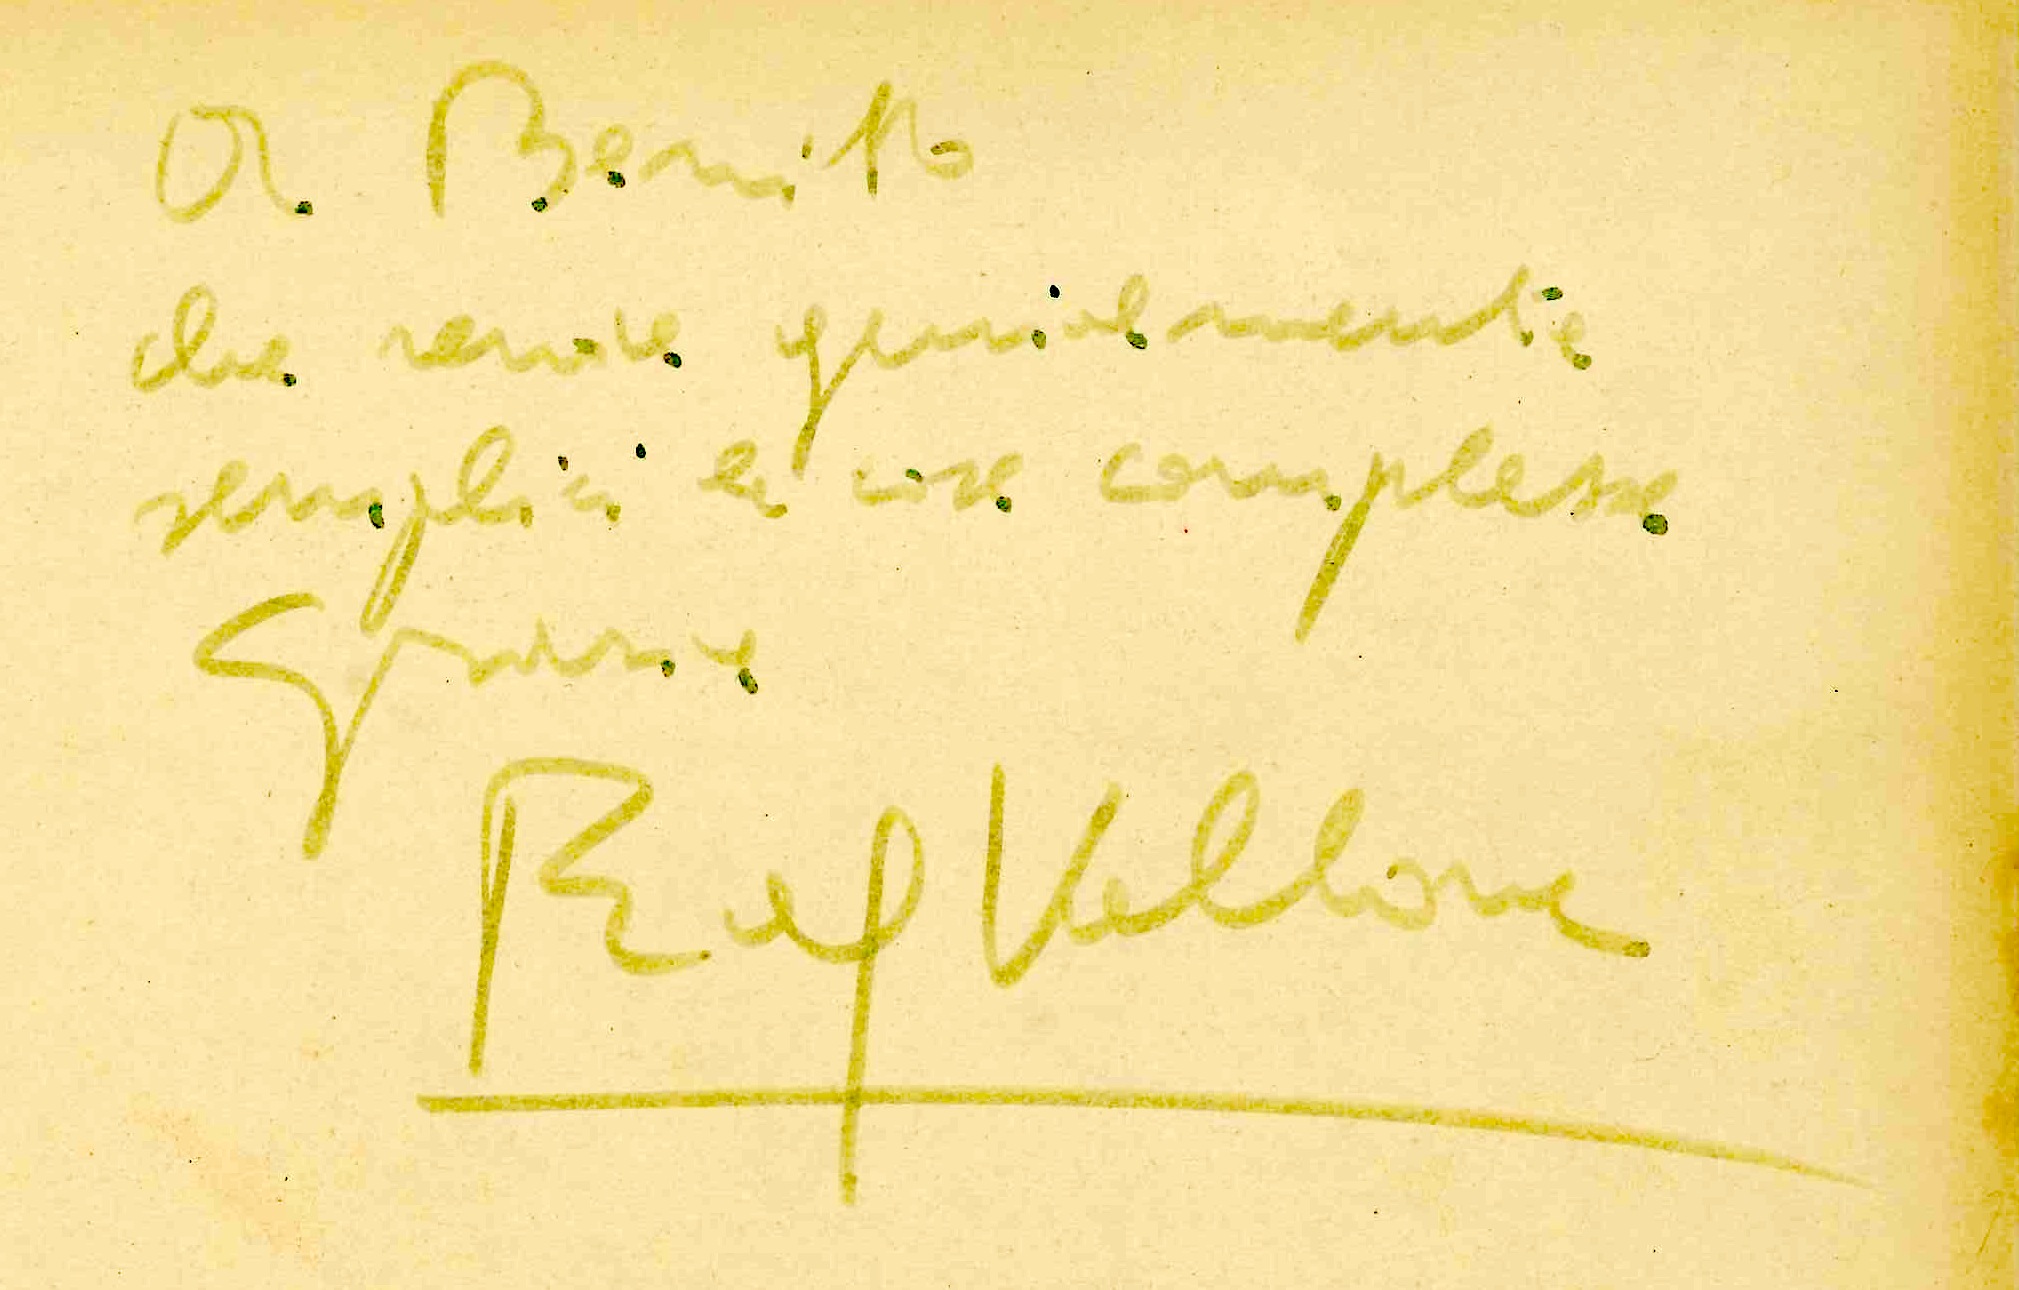 A Benito
che rende genialmente
semplici le cose complesse
Grazie
Raf Vallone